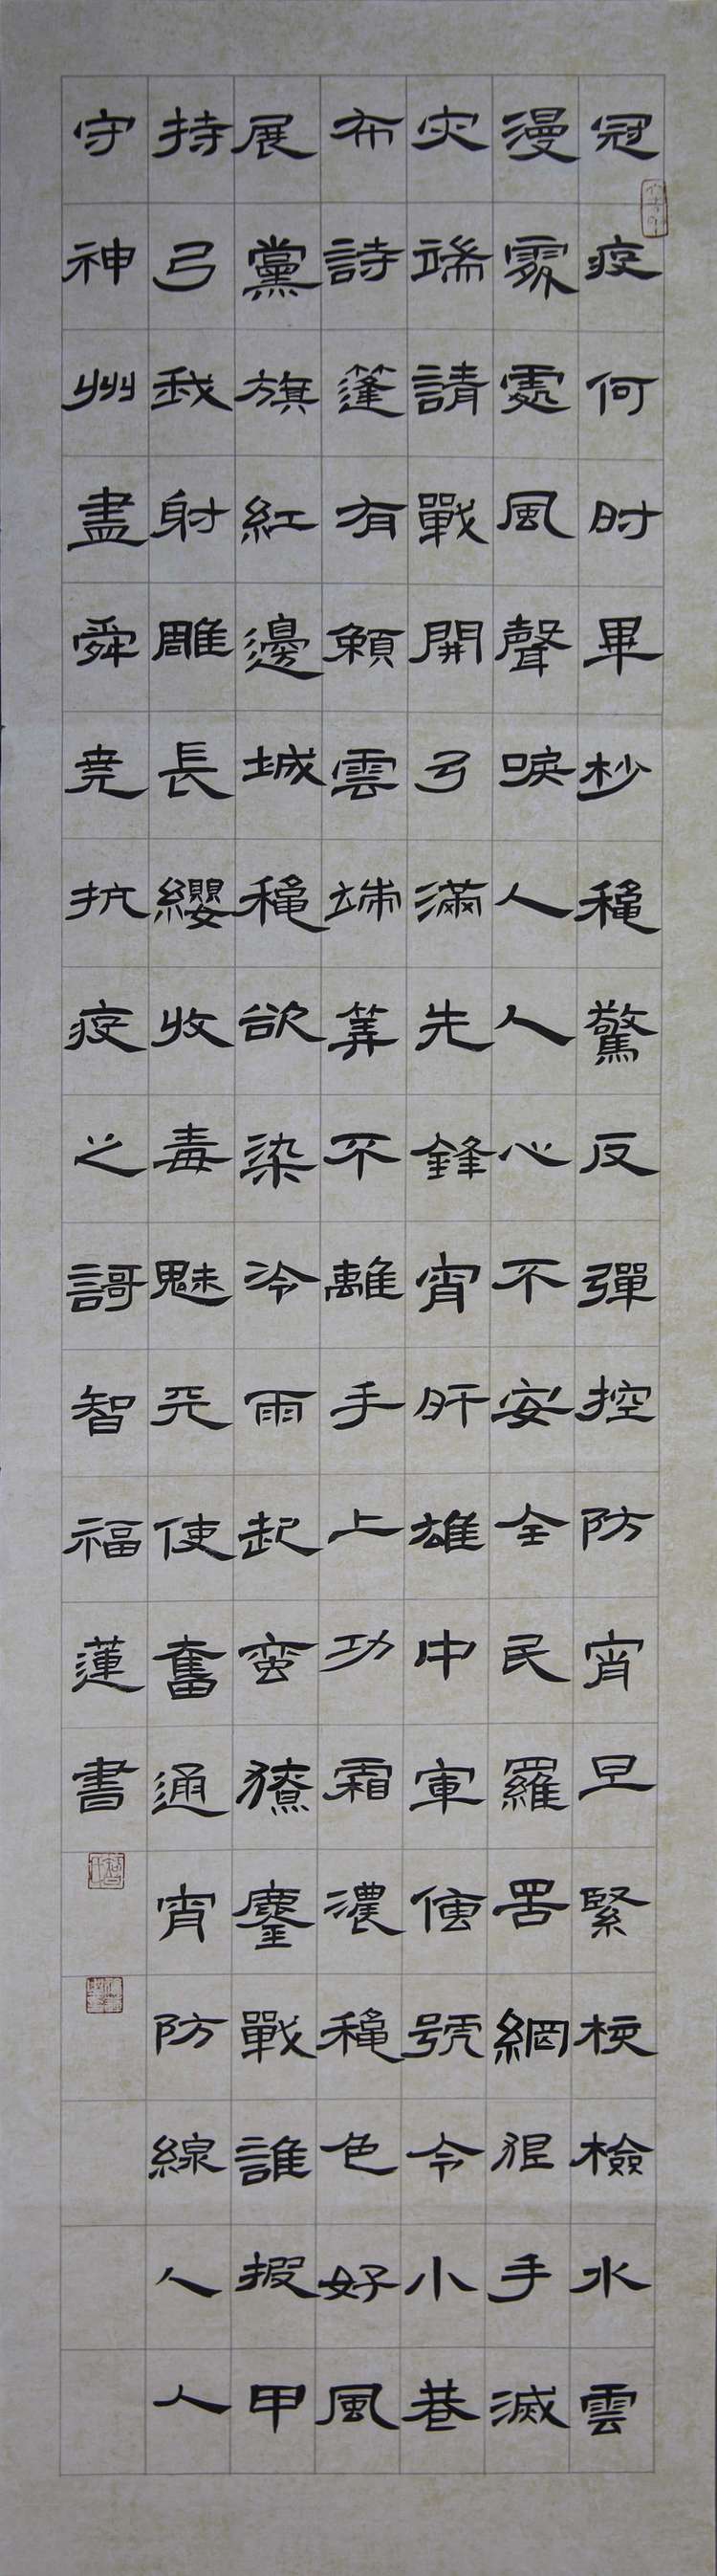 冠疫何时畢杪穐驚反彈控防宵旦緊核檢水雲
漫霧處風聲唳人人心不安全民羅罟網狙手滅
灾端請戰開弓滿先鋒宵旰雄中軍傳號令小巷
布詩篷有賴雲端筭不離手上功霜濃穐色好風
展黨旗紅邊城穐欲染冷雨起蛮獠鏖戰誰披甲
持弓我射雕長纓收毒魅天使奮通宵防線人人
守神州盡舜堯抗疫之謌智福蓮書